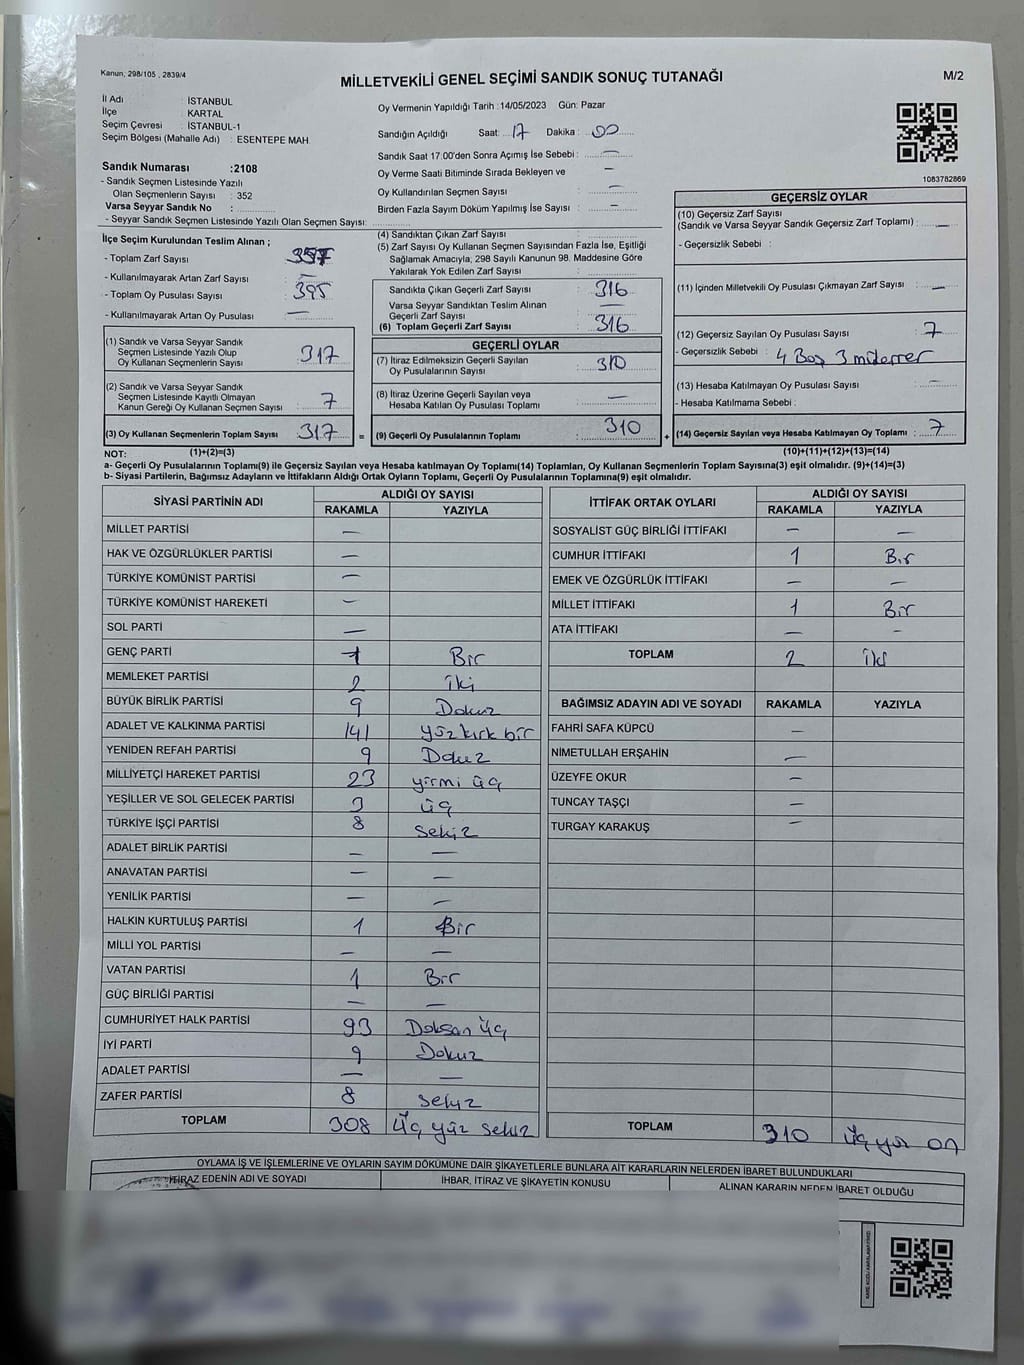 Kanun, 298/105 , 2839/4
MİLLETVEKİLİ GENEL SEÇİMİ SANDIK SONUÇ TUTANAĞI
M/2
İl Adı : İSTANBUL
İlçe : KARTAL
Seçim Çevresi : İSTANBUL-1
Seçim Bölgesi (Mahalle Adı) : ESENTEPE MAH.
Oy Vermenin Yapıldığı Tarih :14/05/2023 Gün: Pazar
Sandığın Açıldığı Saat: 17 Dakika : 00
Sandık Saat 17.00'den Sonra Açımış İse Sebebi : —
Oy Verme Saati Bitiminde Sırada Bekleyen ve —
Oy Kullandırılan Seçmen Sayısı : —
Birden Fazla Sayım Döküm Yapılmış İse Sayısı : —
1083782869
Sandık Numarası :2108
- Sandık Seçmen Listesinde Yazılı
Olan Seçmenlerin Sayısı : 352
Varsa Seyyar Sandık No :
- Seyyar Sandık Seçmen Listesinde Yazılı Olan Seçmen Sayısı:
İlçe Seçim Kurulundan Teslim Alınan ;
- Toplam Zarf Sayısı : 357
- Kullanılmayarak Artan Zarf Sayısı : —
- Toplam Oy Pusulası Sayısı : 395
- Kullanılmayarak Artan Oy Pusulası : —
(1) Sandık ve Varsa Seyyar Sandık
Seçmen Listesinde Yazılı Olup
Oy Kullanan Seçmenlerin Sayısı : 317
(2) Sandık ve Varsa Seyyar Sandık
Seçmen Listesinde Kayıtlı Olmayan
Kanun Gereği Oy Kullanan Seçmen Sayısı : 7
(3) Oy Kullanan Seçmenlerin Toplam Sayısı : 317 =
(4) Sandıktan Çıkan Zarf Sayısı :
(5) Zarf Sayısı Oy Kullanan Seçmen Sayısından Fazla İse, Eşitliği
Sağlamak Amacıyla; 298 Sayılı Kanunun 98. Maddesine Göre
Yakılarak Yok Edilen Zarf Sayısı :
Sandıkta Çıkan Geçerli Zarf Sayısı : 316
Varsa Seyyar Sandıktan Teslim Alınan
Geçerli Zarf Sayısı : —
(6) Toplam Geçerli Zarf Sayısı : 316
GEÇERLİ OYLAR
(7) İtiraz Edilmeksizin Geçerli Sayılan
Oy Pusulalarının Sayısı : 310
(8) İtiraz Üzerine Geçerli Sayılan veya
Hesaba Katılan Oy Pusulası Toplamı : —
(9) Geçerli Oy Pusulalarının Toplamı : 310 +
GEÇERSİZ OYLAR
(10) Geçersiz Zarf Sayısı
(Sandık ve Varsa Seyyar Sandık Geçersiz Zarf Toplamı) : —
- Geçersizlik Sebebi :
(11) İçinden Milletvekili Oy Pusulası Çıkmayan Zarf Sayısı : —
(12) Geçersiz Sayılan Oy Pusulası Sayısı : 7
- Geçersizlik Sebebi : 4 Boş 3
(13) Hesaba Katılmayan Oy Pusulası Sayısı : —
- Hesaba Katılmama Sebebi :
(14) Geçersiz Sayılan veya Hesaba Katılmayan Oy Toplamı : 7
NOT: (1)+(2)=(3) (10)+(11)+(12)+(13)=(14)
a- Geçerli Oy Pusulalarının Toplamı(9) ile Geçersiz Sayılan veya Hesaba katılmayan Oy Toplamı(14) Toplamları, Oy Kullanan Seçmenlerin Toplam Sayısına(3) eşit olmalıdır. (9)+(14)=(3)
b- Siyasi Partilerin, Bağımsız Adayların ve İttifakların Aldığı Ortak Oyların Toplamı, Geçerli Oy Pusulalarının Toplamına(9) eşit olmalıdır.
SİYASİ PARTİNİN ADI ALDIĞI OY SAYISI
RAKAMLA YAZIYLA
MİLLET PARTİSİ —
HAK VE ÖZGÜRLÜKLER PARTİSİ —
TÜRKİYE KOMÜNİST PARTİSİ —
TÜRKİYE KOMÜNİST HAREKETİ —
SOL PARTİ —
GENÇ PARTİ 1 Bir
MEMLEKET PARTİSİ 2 iki
BÜYÜK BİRLİK PARTİSİ 9 Dokuz
ADALET VE KALKINMA PARTİSİ 141 yüz kırk bir
YENİDEN REFAH PARTİSİ 9 Dokuz
MİLLİYETÇİ HAREKET PARTİSİ 23 yirmi üç
YEŞİLLER VE SOL GELECEK PARTİSİ 3 üç
TÜRKİYE İŞÇİ PARTİSİ 8 sekiz
ADALET BİRLİK PARTİSİ — —
ANAVATAN PARTİSİ — —
YENİLİK PARTİSİ — —
HALKIN KURTULUŞ PARTİSİ 1 Bir
MİLLİ YOL PARTİSİ — —
VATAN PARTİSİ 1 Bir
GÜÇ BİRLİĞİ PARTİSİ — —
CUMHURİYET HALK PARTİSİ 93 Doksan üç
İYİ PARTİ 9 Dokuz
ADALET PARTİSİ — —
ZAFER PARTİSİ 8 sekiz
TOPLAM 308 üç yüz sekiz
İTTİFAK ORTAK OYLARI ALDIĞI OY SAYISI
RAKAMLA YAZIYLA
SOSYALİST GÜÇ BİRLİĞİ İTTİFAKI — —
CUMHUR İTTİFAKI 1 Bir
EMEK VE ÖZGÜRLÜK İTTİFAKI — —
MİLLET İTTİFAKI 1 Bir
ATA İTTİFAKI — —
TOPLAM 2 iki
BAĞIMSIZ ADAYIN ADI VE SOYADI RAKAMLA YAZIYLA
FAHRİ SAFA KÜPCÜ —
NİMETULLAH ERŞAHİN —
ÜZEYFE OKUR —
TUNCAY TAŞÇI —
TURGAY KARAKUŞ —
TOPLAM 310 üç yüz on
OYLAMA İŞ VE İŞLEMLERİNE VE OYLARIN SAYIM DÖKÜMÜNE DAİR ŞİKAYETLERLE BUNLARA AİT KARARLARIN NELERDEN İBARET BULUNDUKLARI
İTİRAZ EDENİN ADI VE SOYADI İHBAR, İTİRAZ VE ŞİKAYETİN KONUSU ALINAN KARARIN NEDEN İBARET OLDUĞU